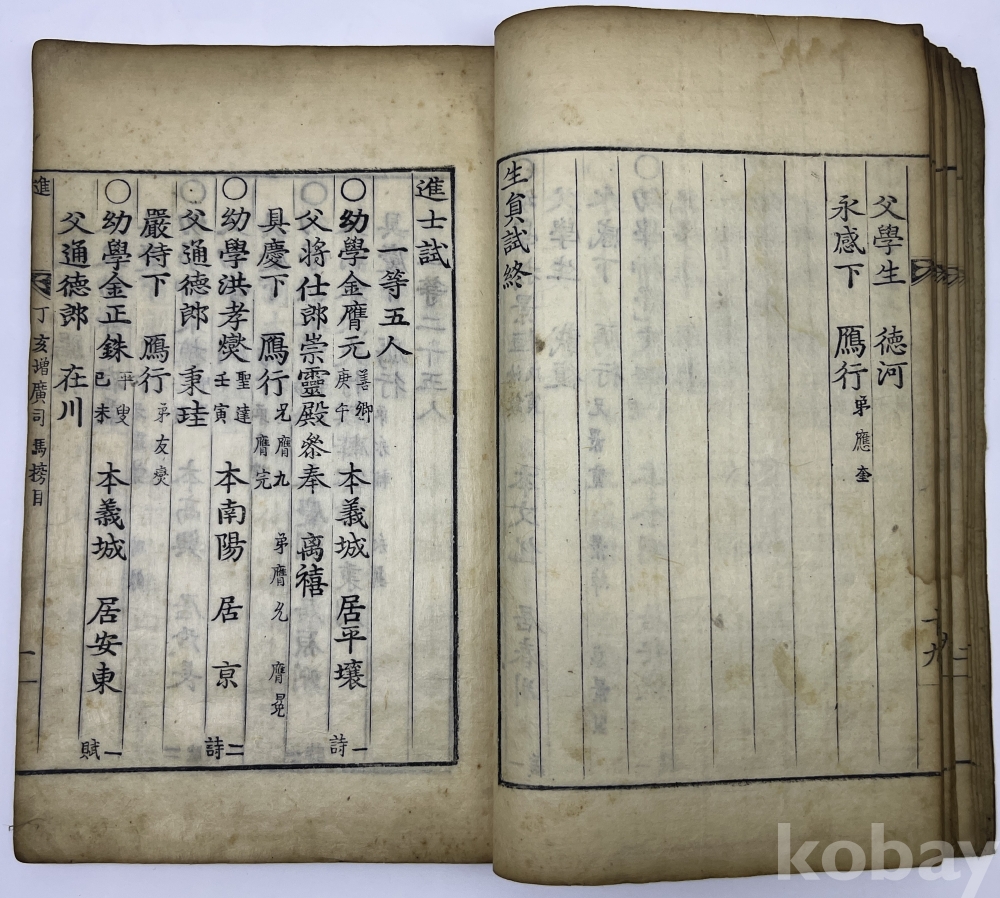 父學生 德河
永感下 鴈行 弟應奎
生員試終
進士試
一等五人
○幼學金膺元 善卿 庚午 本義城 居平壤 詩一
父將仕郎崇靈殿參奉 禼禧
具慶下 鴈行 兄膺九 膺完 弟膺允 膺冕
○幼學洪孝燮 聖達 壬寅 本南陽 居京 詩二
父通德郎 秉珪
嚴侍下 鴈行 弟友燮
○幼學金正銖 平叟 己未 本義城 居安東 賦一
父通德郎 在川
進 丁亥增廣司馬榜目 一
kobay